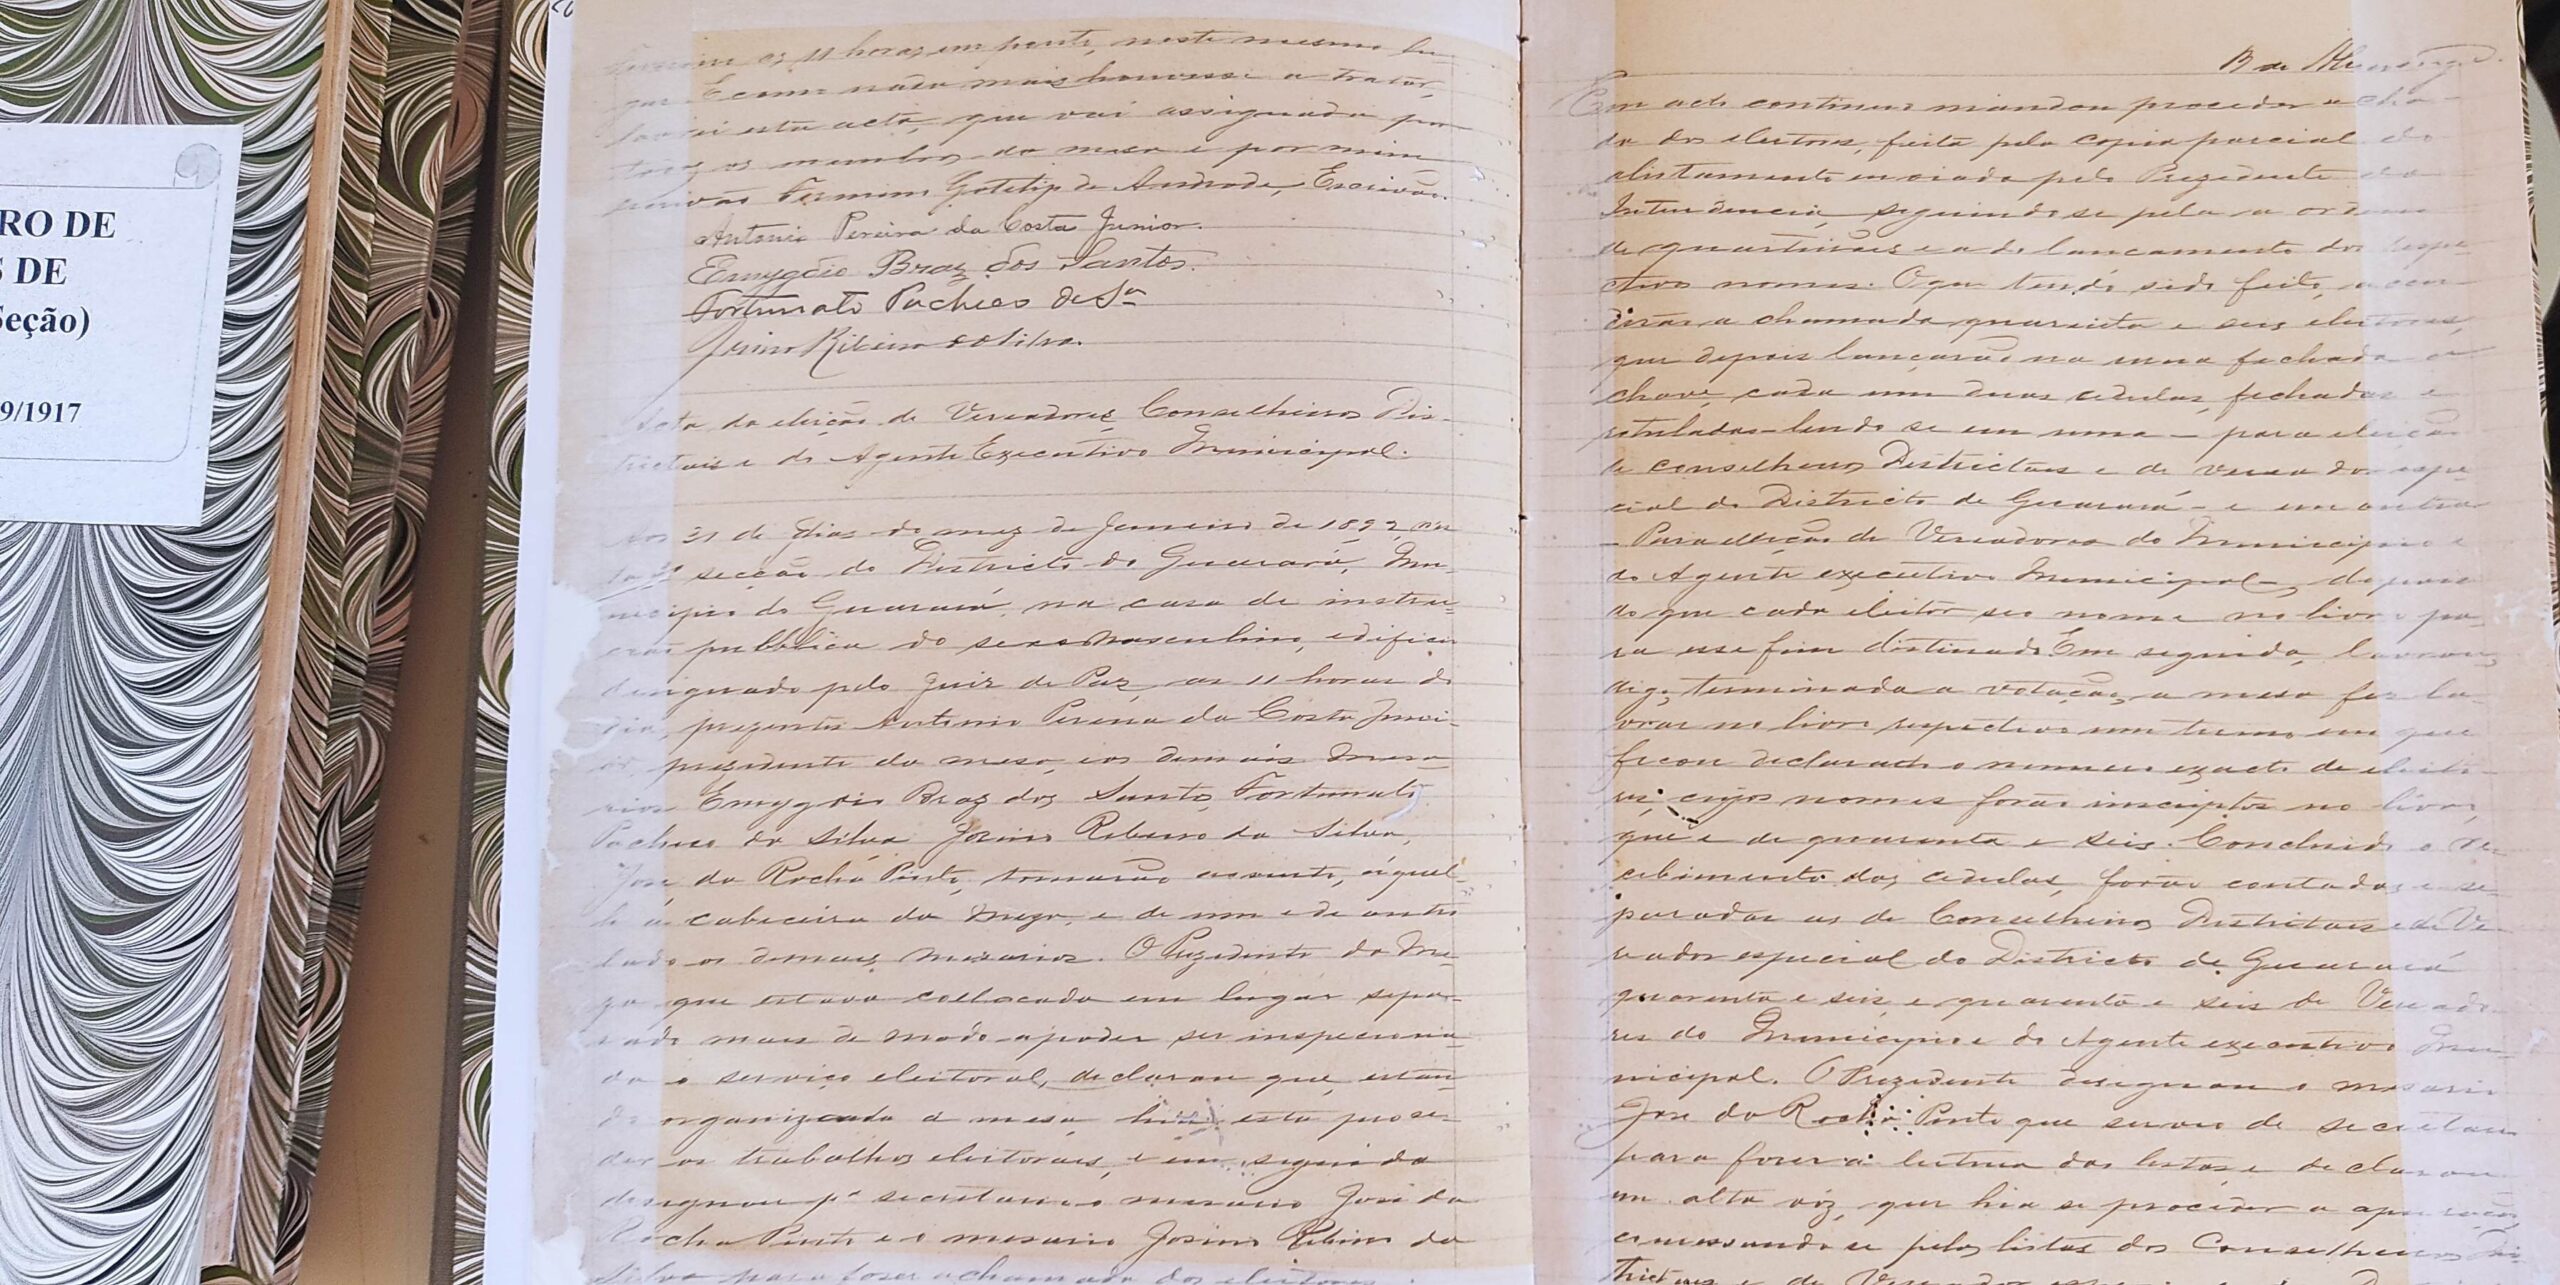 RO DE
S DE
Seção)
9/1917
as 11 horas em ponto, neste mesmo lu-
gar E como nada mais houvesse a tratar,
lavrei esta acta, que vai assignada por
todos os membros da mesa e por mim
escrivão Firmino Gotelip de Andrade, Escrivão.
Antonio Pereira da Costa Junior.
Emygdio Braz dos Santos.
Fortunato Pacheco de Sª
Josino Ribeiro da Silva.
Acta da eleição de Vereadores Conselheiros Dis-
trictais e do Agente Executivo Municipal.
Aos 31 de dias do mez de Janeiro de 1892, na
secção do Districto do Guarará, Mu-
nicipio do Guarará, na casa de instru-
cção publica do sexo masculino, edificio
designado pelo Juiz de Paz, as 11 horas do
dia, prezentes Antonio Pereira da Costa Juni-
or, prezidente da mesa, e os demais mesa-
rios Emygdio Braz dos Santos, Fortunato
Pacheco da Silva Josino Ribeiro da Silva,
José da Rocha Pinto, tomarão assento, áquel-
le á cabeceira da meza, e de um e de outro
lado os demais mesarios. O Prezidente da Me-
za que estava collocada em lugar sepa-
rado mais de modo a poder ser inspeciona-
do o serviço eleitoral, declarou que, estan-
do organizada a mesa, esta proce-
der os trabalhos eleitorais, e em seguida
designou pª secretario o mesario José da
Rocha Pinto e o mesario Josino Ribeiro da
Silva para fazer a chamada dos eleitores.
B de
Em acto continuo mandou proceder a cha-
da dos eleitores, feita pela copia parcial do
alistamento enviada pelo Prezidente da
Intendencia, seguindo se pela a ordem
de quarteirões e a do lançamento dos respe-
ctivos nomes. O que tendo sido feito, acon-
dirão a chamada quarenta e seis eleitores,
que depois lançarão na urna fechada á
chave, cada um duas cedulas, fechadas e
rotuladas - lendo se em uma - para eleição
de conselheiros Districtaes e de vereador espe-
cial do Districto de Guarará - e em outra
- Para eleição de Vereadores do Municipio e
do Agente executivo Municipal -, depois
do que cada eleitor seo nome no livro pa-
ra esse fim distinado. Em seguida, lavrou
digo, terminada a votação, a mesa fez la-
vrar no livro respectivo um termo em que
ficou declarado o numero exacto de eleito-
res, cujos nomes forão inscriptos no livro,
que é de quarenta e seis. Concluido o re-
cebimento das cedulas, forão contadas e se-
paradas as de Conselheiros Districtaes e de Ve-
reador especial do Districto de Guarará
quarenta e seis, e quarenta e seis de Vereado-
res do Municipio e do Agente executivo Mu-
nicipal. O Prezidente designou o mesario
José da Rocha Pinto que servio de secretario
para fazer a leitura das listas, e declarou
em alta vóz, que hia se proceder a apuração,
comessando se pelas listas dos Conselheiros Dis-
trictaes e de Vereador